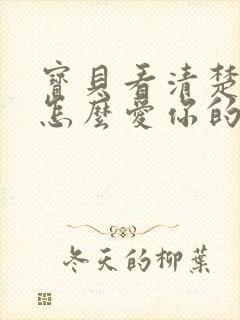 寶貝看清楚
怎麼愛你的
冬天的柳葉